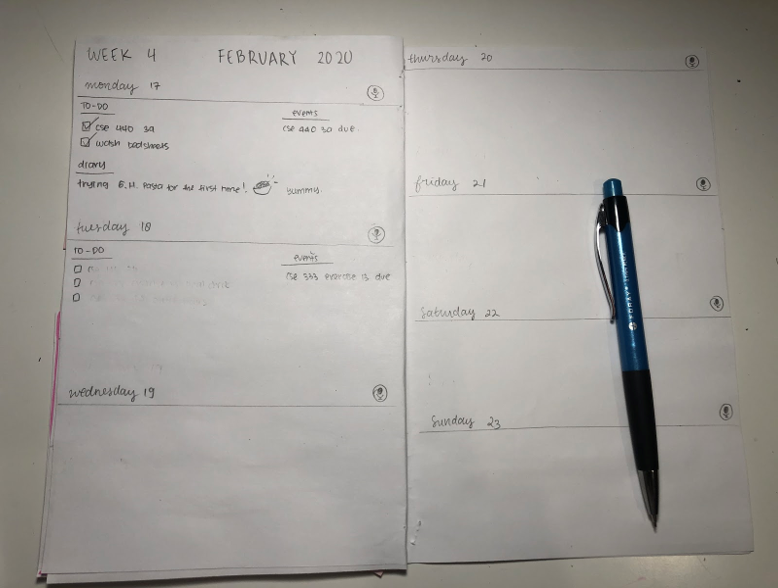 WEEK 4 FEBRUARY 2020
monday 17
TO-DO
events
cse 440 3a
cse 440 3a due
wash bedsheets
diary
trying E.H. Pasta for the first time! yummy.
tuesday 18
TO-DO
events
cse 333 exercise 13 due
wednesday 19
thursday 20
friday 21
saturday 22
sunday 23
FORAY